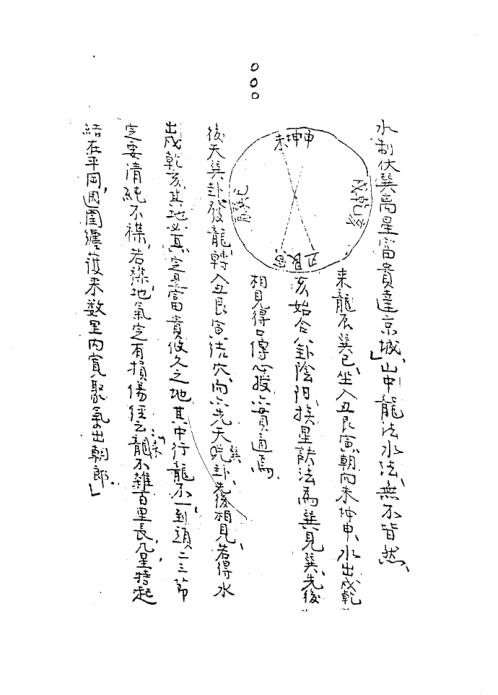 水制伏巽高星富貴達京城」山中龍法水法、無不皆然、
來龍辰巽巳、坐入丑艮寅、朝向未坤申、水出戌乾
亥始合八卦陰陽、挨星訣法為巽見巽、先後
相見得口傳心授、六貫通焉、
未坤申
戌乾亥
丑艮寅
辰巽巳
後天巽卦發龍、轉入丑艮寅、結穴、向六先天巽卦、先後相見、若得水
出戌乾亥、其地必真、定是富貴悠久之地、其中行龍不一、到頭一二三節
定要清純不襍、若襍、地氣定有損傷、經云、龍不雜百里長、凡星特起
結在平岡、週圍纏護来数里内實聚氣出朝郎、」